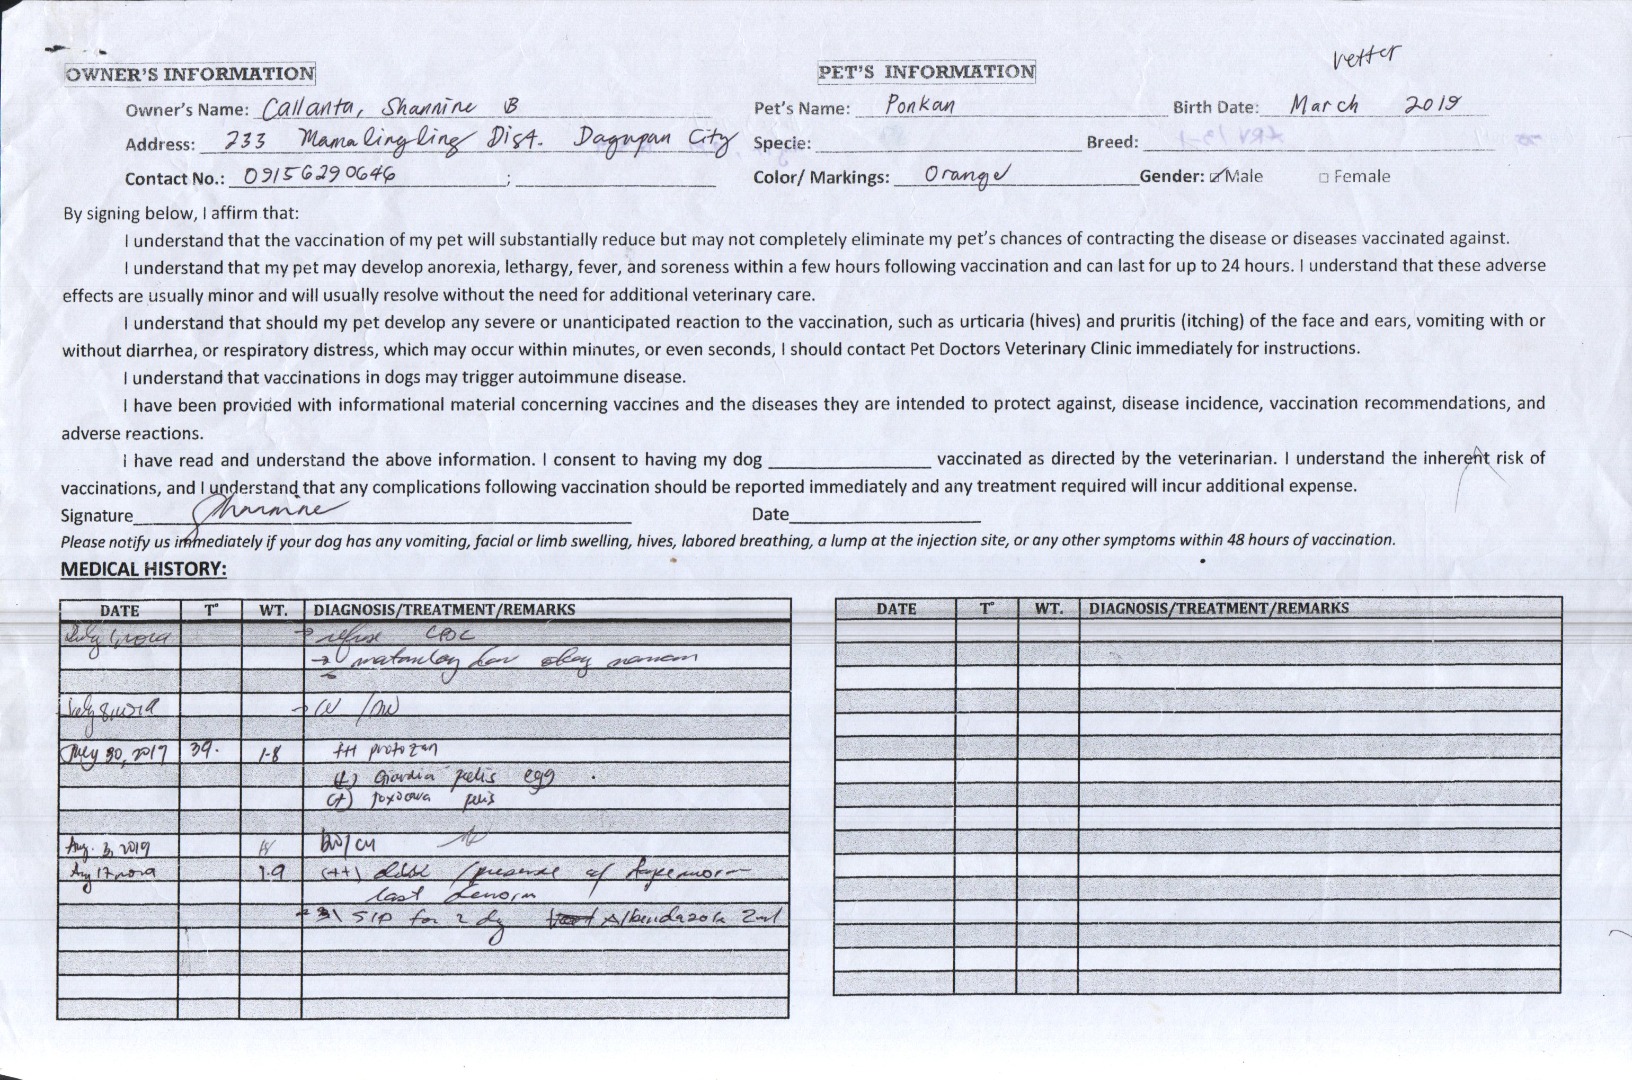 vetter
OWNER'S INFORMATION
PET'S INFORMATION
Owner's Name: Callanta, Shannine B
Pet's Name: Ponkan Birth Date: March 2019
Address: 233 Mamalingling Dist. Dagupan City
Specie: Breed:
Contact No.: 09156290646 ;
Color/ Markings: Orange Gender: ☑Male □ Female
By signing below, I affirm that:
I understand that the vaccination of my pet will substantially reduce but may not completely eliminate my pet's chances of contracting the disease or diseases vaccinated against.
I understand that my pet may develop anorexia, lethargy, fever, and soreness within a few hours following vaccination and can last for up to 24 hours. I understand that these adverse
effects are usually minor and will usually resolve without the need for additional veterinary care.
I understand that should my pet develop any severe or unanticipated reaction to the vaccination, such as urticaria (hives) and pruritis (itching) of the face and ears, vomiting with or
without diarrhea, or respiratory distress, which may occur within minutes, or even seconds, I should contact Pet Doctors Veterinary Clinic immediately for instructions.
I understand that vaccinations in dogs may trigger autoimmune disease.
I have been provided with informational material concerning vaccines and the diseases they are intended to protect against, disease incidence, vaccination recommendations, and
adverse reactions.
I have read and understand the above information. I consent to having my dog ________________ vaccinated as directed by the veterinarian. I understand the inherent risk of
vaccinations, and I understand that any complications following vaccination should be reported immediately and any treatment required will incur additional expense.
Signature Shannine Date
Please notify us immediately if your dog has any vomiting, facial or limb swelling, hives, labored breathing, a lump at the injection site, or any other symptoms within 48 hours of vaccination.
MEDICAL HISTORY:
DATE T° WT. DIAGNOSIS/TREATMENT/REMARKS
→ refuse CPOC
→
July 30, 2017 39. 1.8 protozan
(+) Giardia felis egg
(+) felis
Aug. 3, 2019
Aug 17 1.9 (++) /presence of tapeworm
last deworm
SIP for 2 dy Albendazole 2ml
DATE T° WT. DIAGNOSIS/TREATMENT/REMARKS